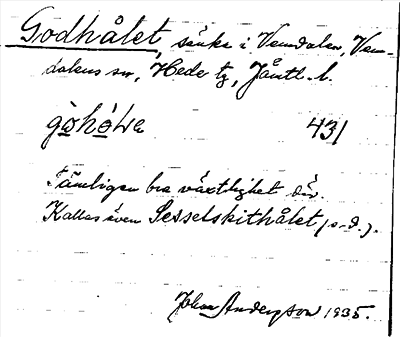 Godhålet, sänka i Vemdalen, Vem-
dalens sn, Hede tg, Jämtl. l.
gòhóLe 431
Tämligen bra växtlighet där.
Kallas även Sesselskithålet (s.d.).
Johan Anderzson 1935.